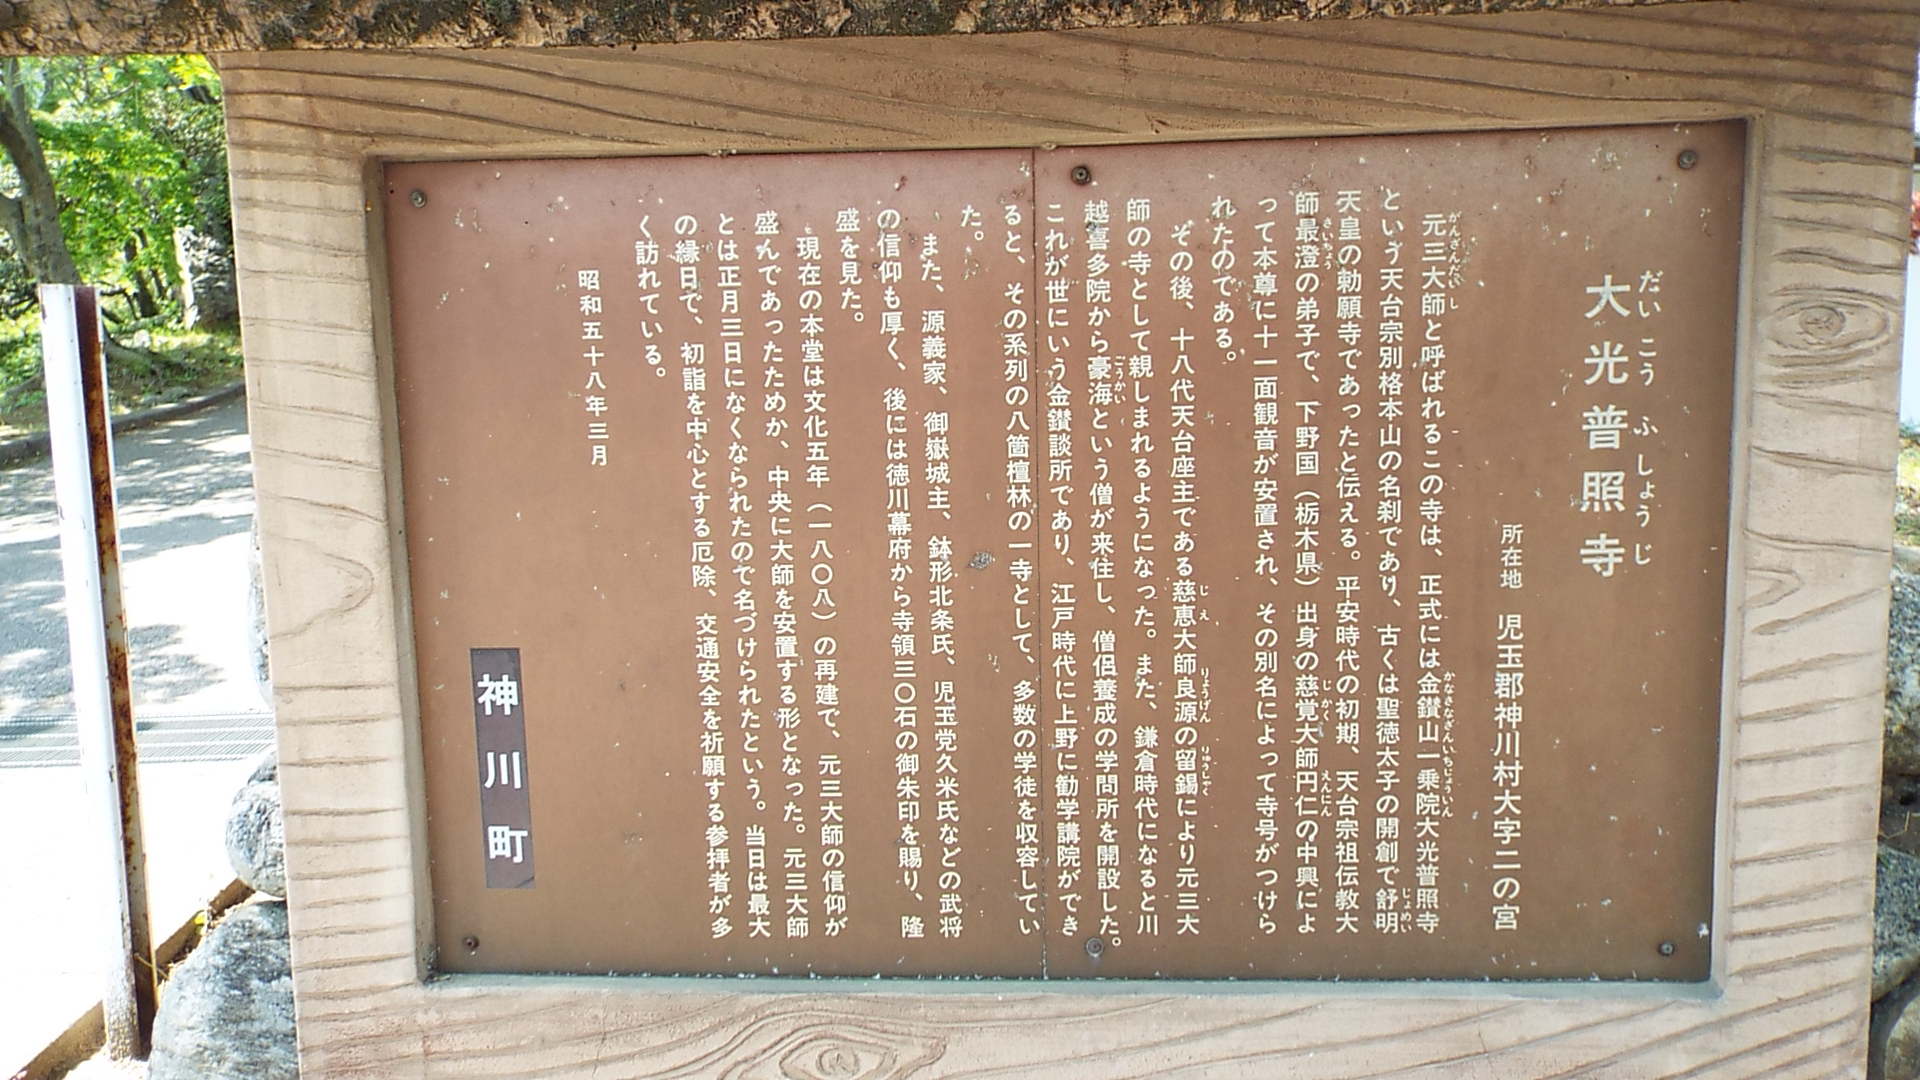 大光普照寺
だいこうふしょうじ
所在地 児玉郡神川村大字二の宮
元三大師と呼ばれるこの寺は、正式には金鑚山一乗院大光普照寺
がんざんだいし かなさなざんいちじょういん
という天台宗別格本山の名刹であり、古くは聖徳太子の開創で舒明
じょめい
天皇の勅願寺であったと伝える。平安時代の初期、天台宗祖伝教大
師最澄の弟子で、下野国（栃木県）出身の慈覚大師円仁の中興によ
さいちょう じかく えんにん
って本尊に十一面観音が安置され、その別名によって寺号がつけら
れたのである。
その後、十八代天台座主である慈恵大師良源の留錫により元三大
じえ りょうげん りゅうしゃく
師の寺として親しまれるようになった。また、鎌倉時代になると川
越喜多院から豪海という僧が来住し、僧侶養成の学問所を開設した。
ごうかい
これが世にいう金鑚談所であり、江戸時代に上野に勧学講院ができ
ると、その系列の八箇檀林の一寺として、多数の学徒を収容してい
た。
また、源義家、御嶽城主、鉢形北条氏、児玉党久米氏などの武将
の信仰も厚く、後には徳川幕府から寺領三〇石の御朱印を賜り、隆
盛を見た。
現在の本堂は文化五年（一八〇八）の再建で、元三大師の信仰が
盛んであったためか、中央に大師を安置する形となった。元三大師
とは正月三日になくなられたので名づけられたという。当日は最大
の縁日で、初詣を中心とする厄除、交通安全を祈願する参拝者が多
く訪れている。
昭和五十八年三月
神川町